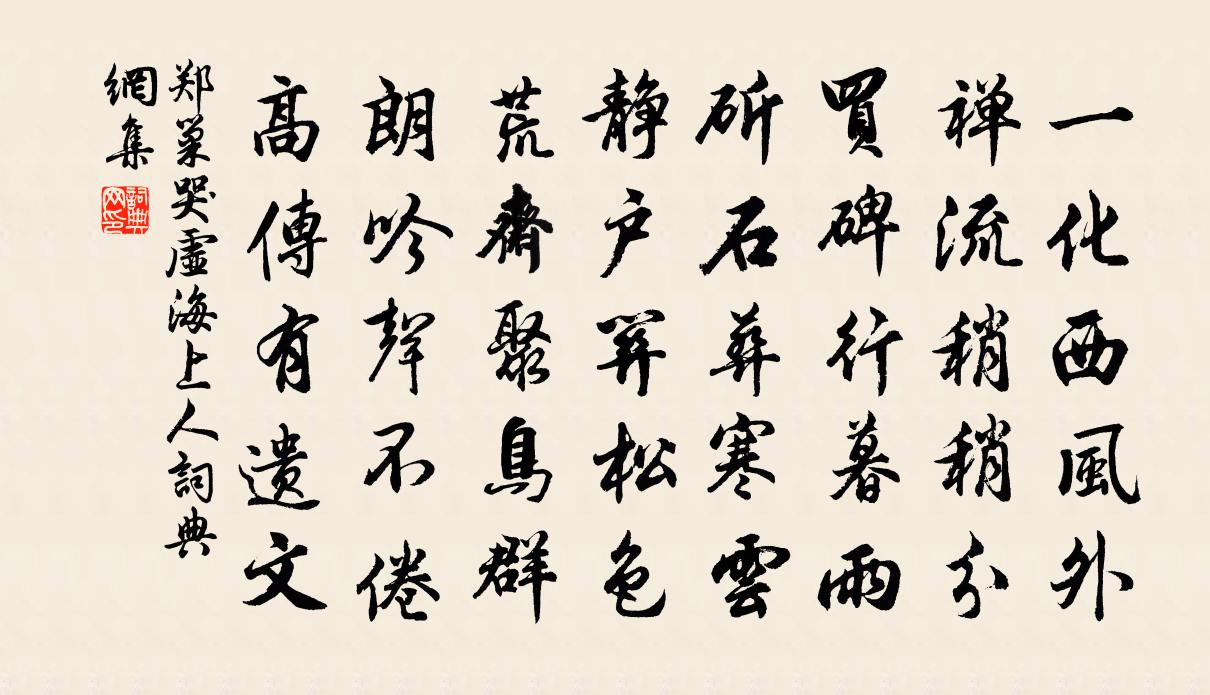 一化西風外
禅流稍稍分
買碑行暮雨
斫石葬寒雲
静户箅松色
荒齋聚鳥群
朗吟聲不倦
高傳有遺文
郑巢哭虛海上人詞典
網集
詞典网印